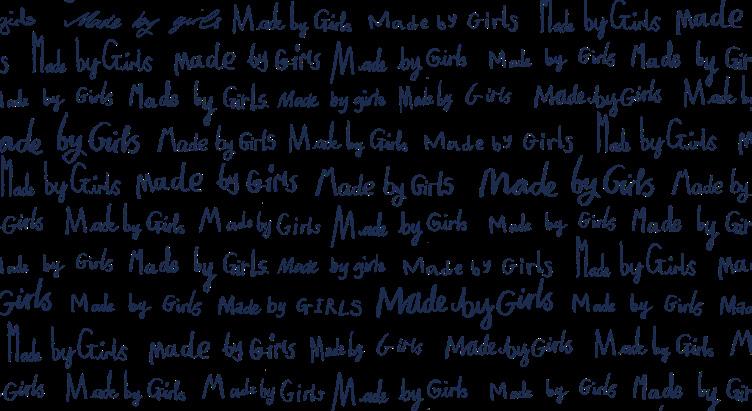 girls Made by girls Made by Girls Made by Girls Made by Girls made
s Made by Girls made by Girls Made by Girls Made by Girls Made by Gir
Made by Girls Made by Girls Made by girls Made by Girls Made by Girls Made b
ade by Girls Made by Girls Made by Girls Made by Girls Made by Girls m
Made by Girls made by Girls Made by Girls Made by Girls Made by
Girls Made by Girls Made by Girls Made by Girls Made by Girls Made by Gir
Made by Girls Made by Girls Made by girls Made by Girls Made by Girls ma
Girls Made by Girls Made by GIRLS Made by Girls Made by Girls Ma
Made by Girls made by Girls Made by Girls Made by Girls Made by Girls M
Girls Made by Girls Made by Girls Made by Girls Made by Girls Made by Gir